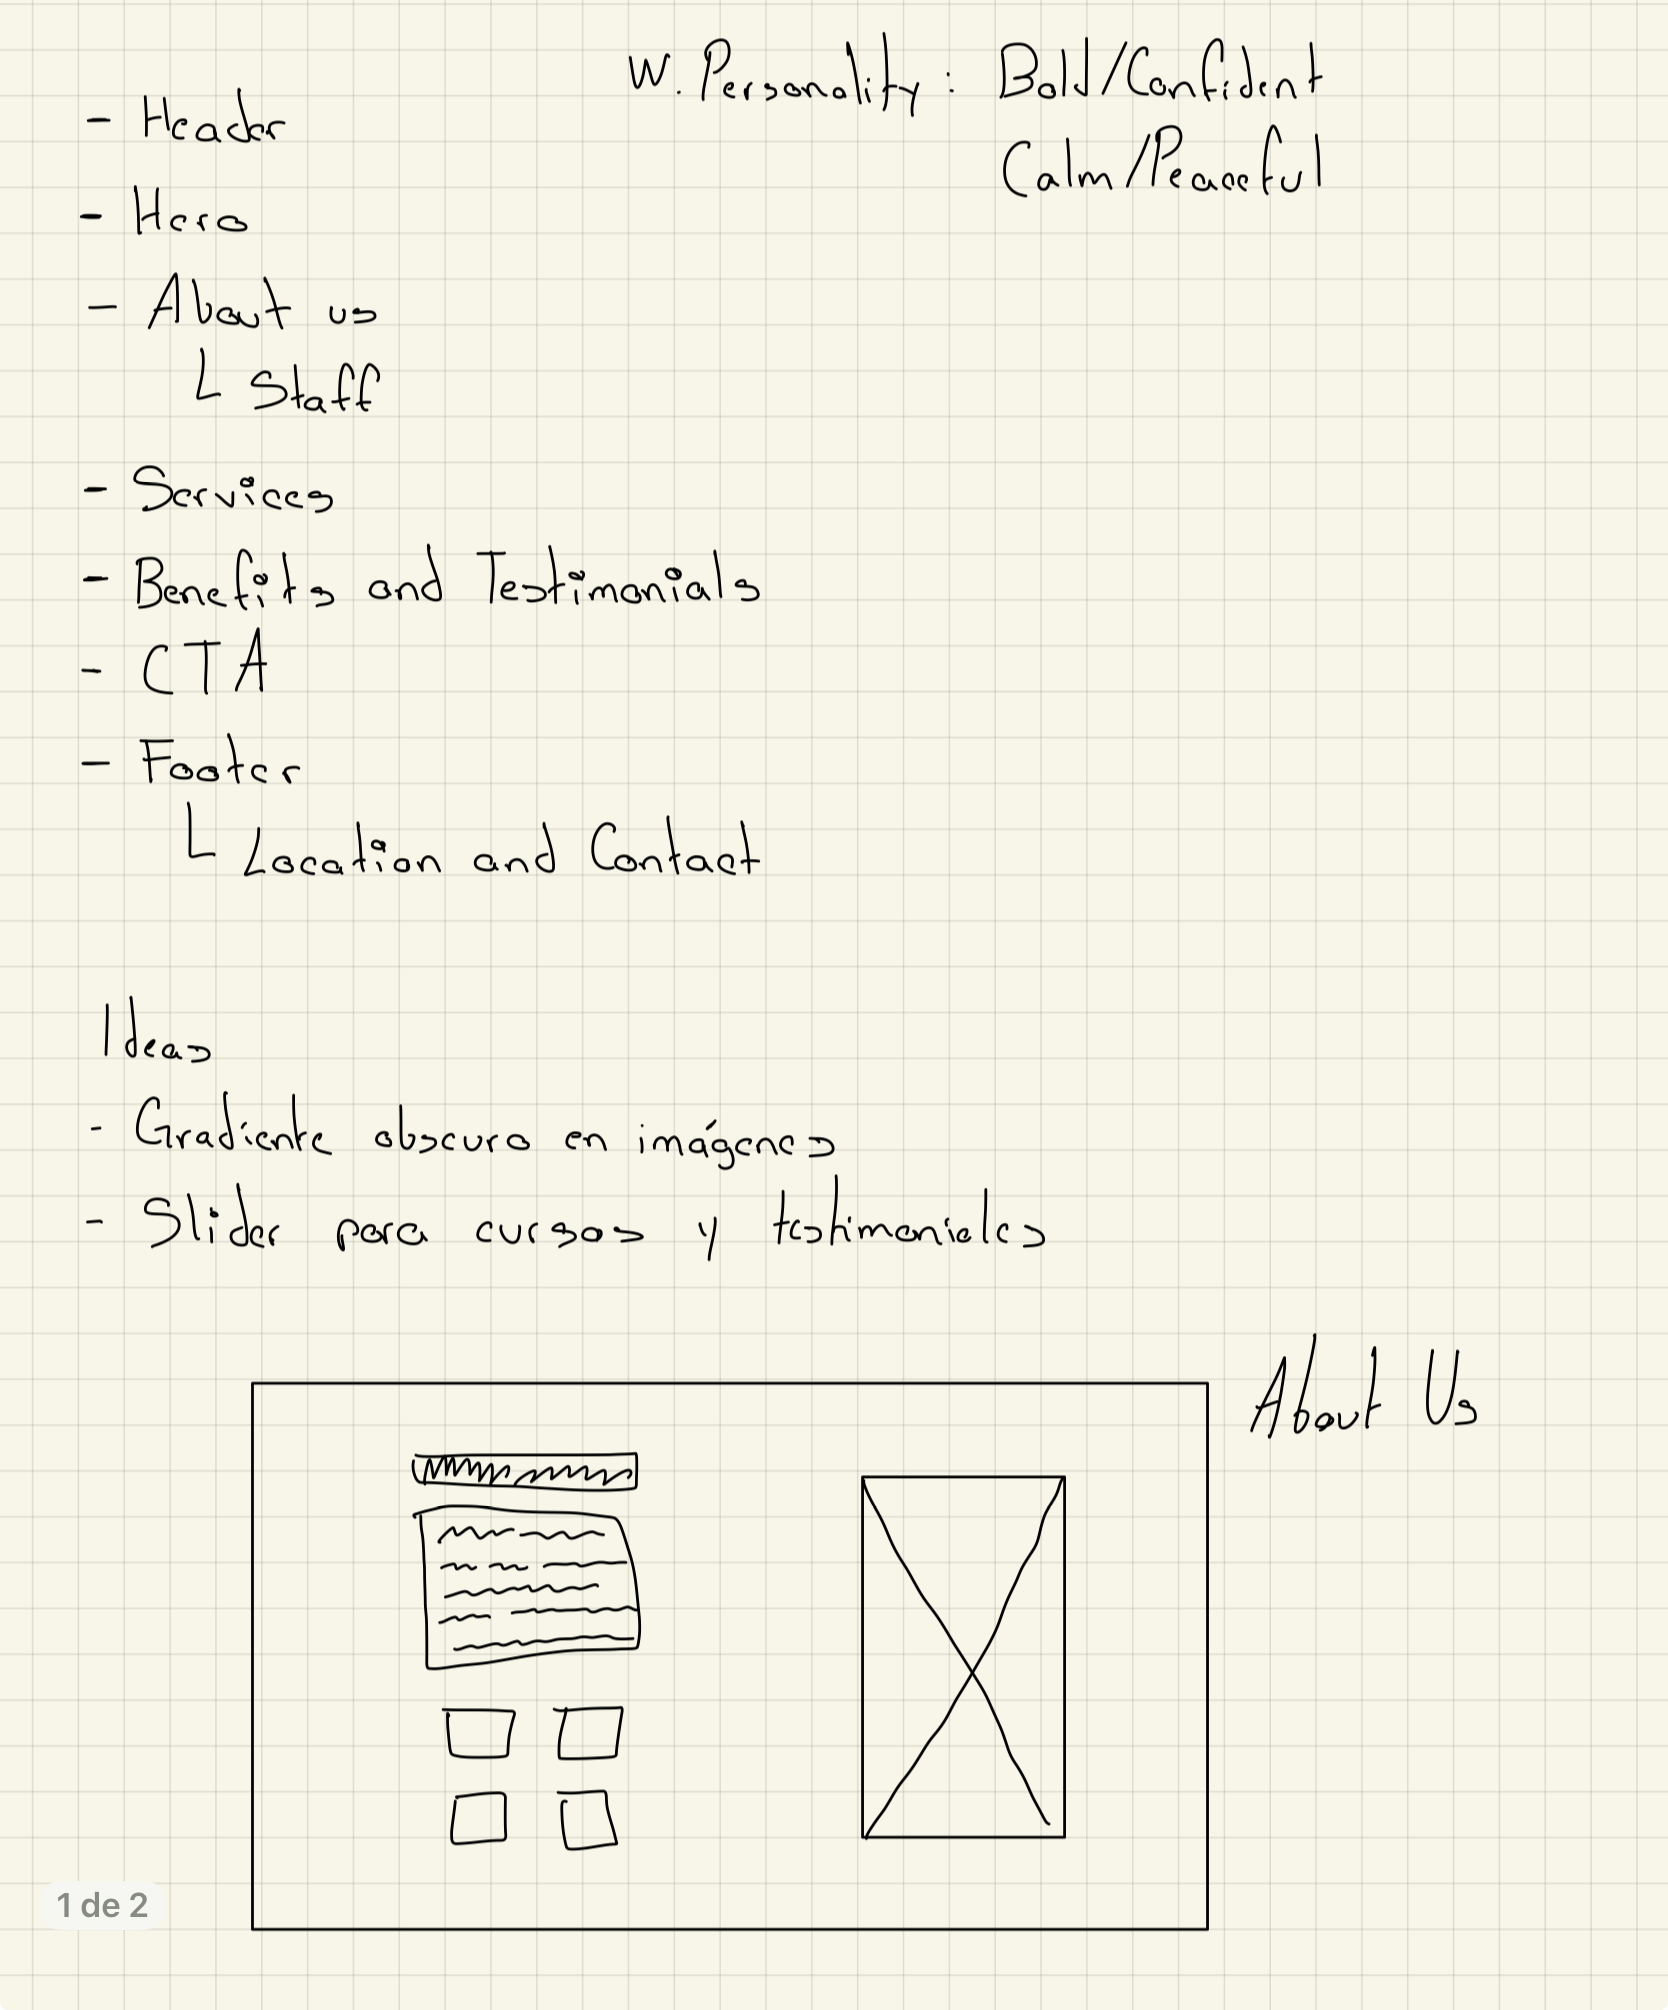 W. Personality: Bold/Confident
Calm/Peaceful
- Header
- Hero
- About us
└ Staff
- Services
- Benefits and Testimonials
- CTA
- Footer
└ Location and Contact
Ideas
- Gradiente obscuro en imágenes
- Slider para cursos y testimoniales
About Us
1 de 2